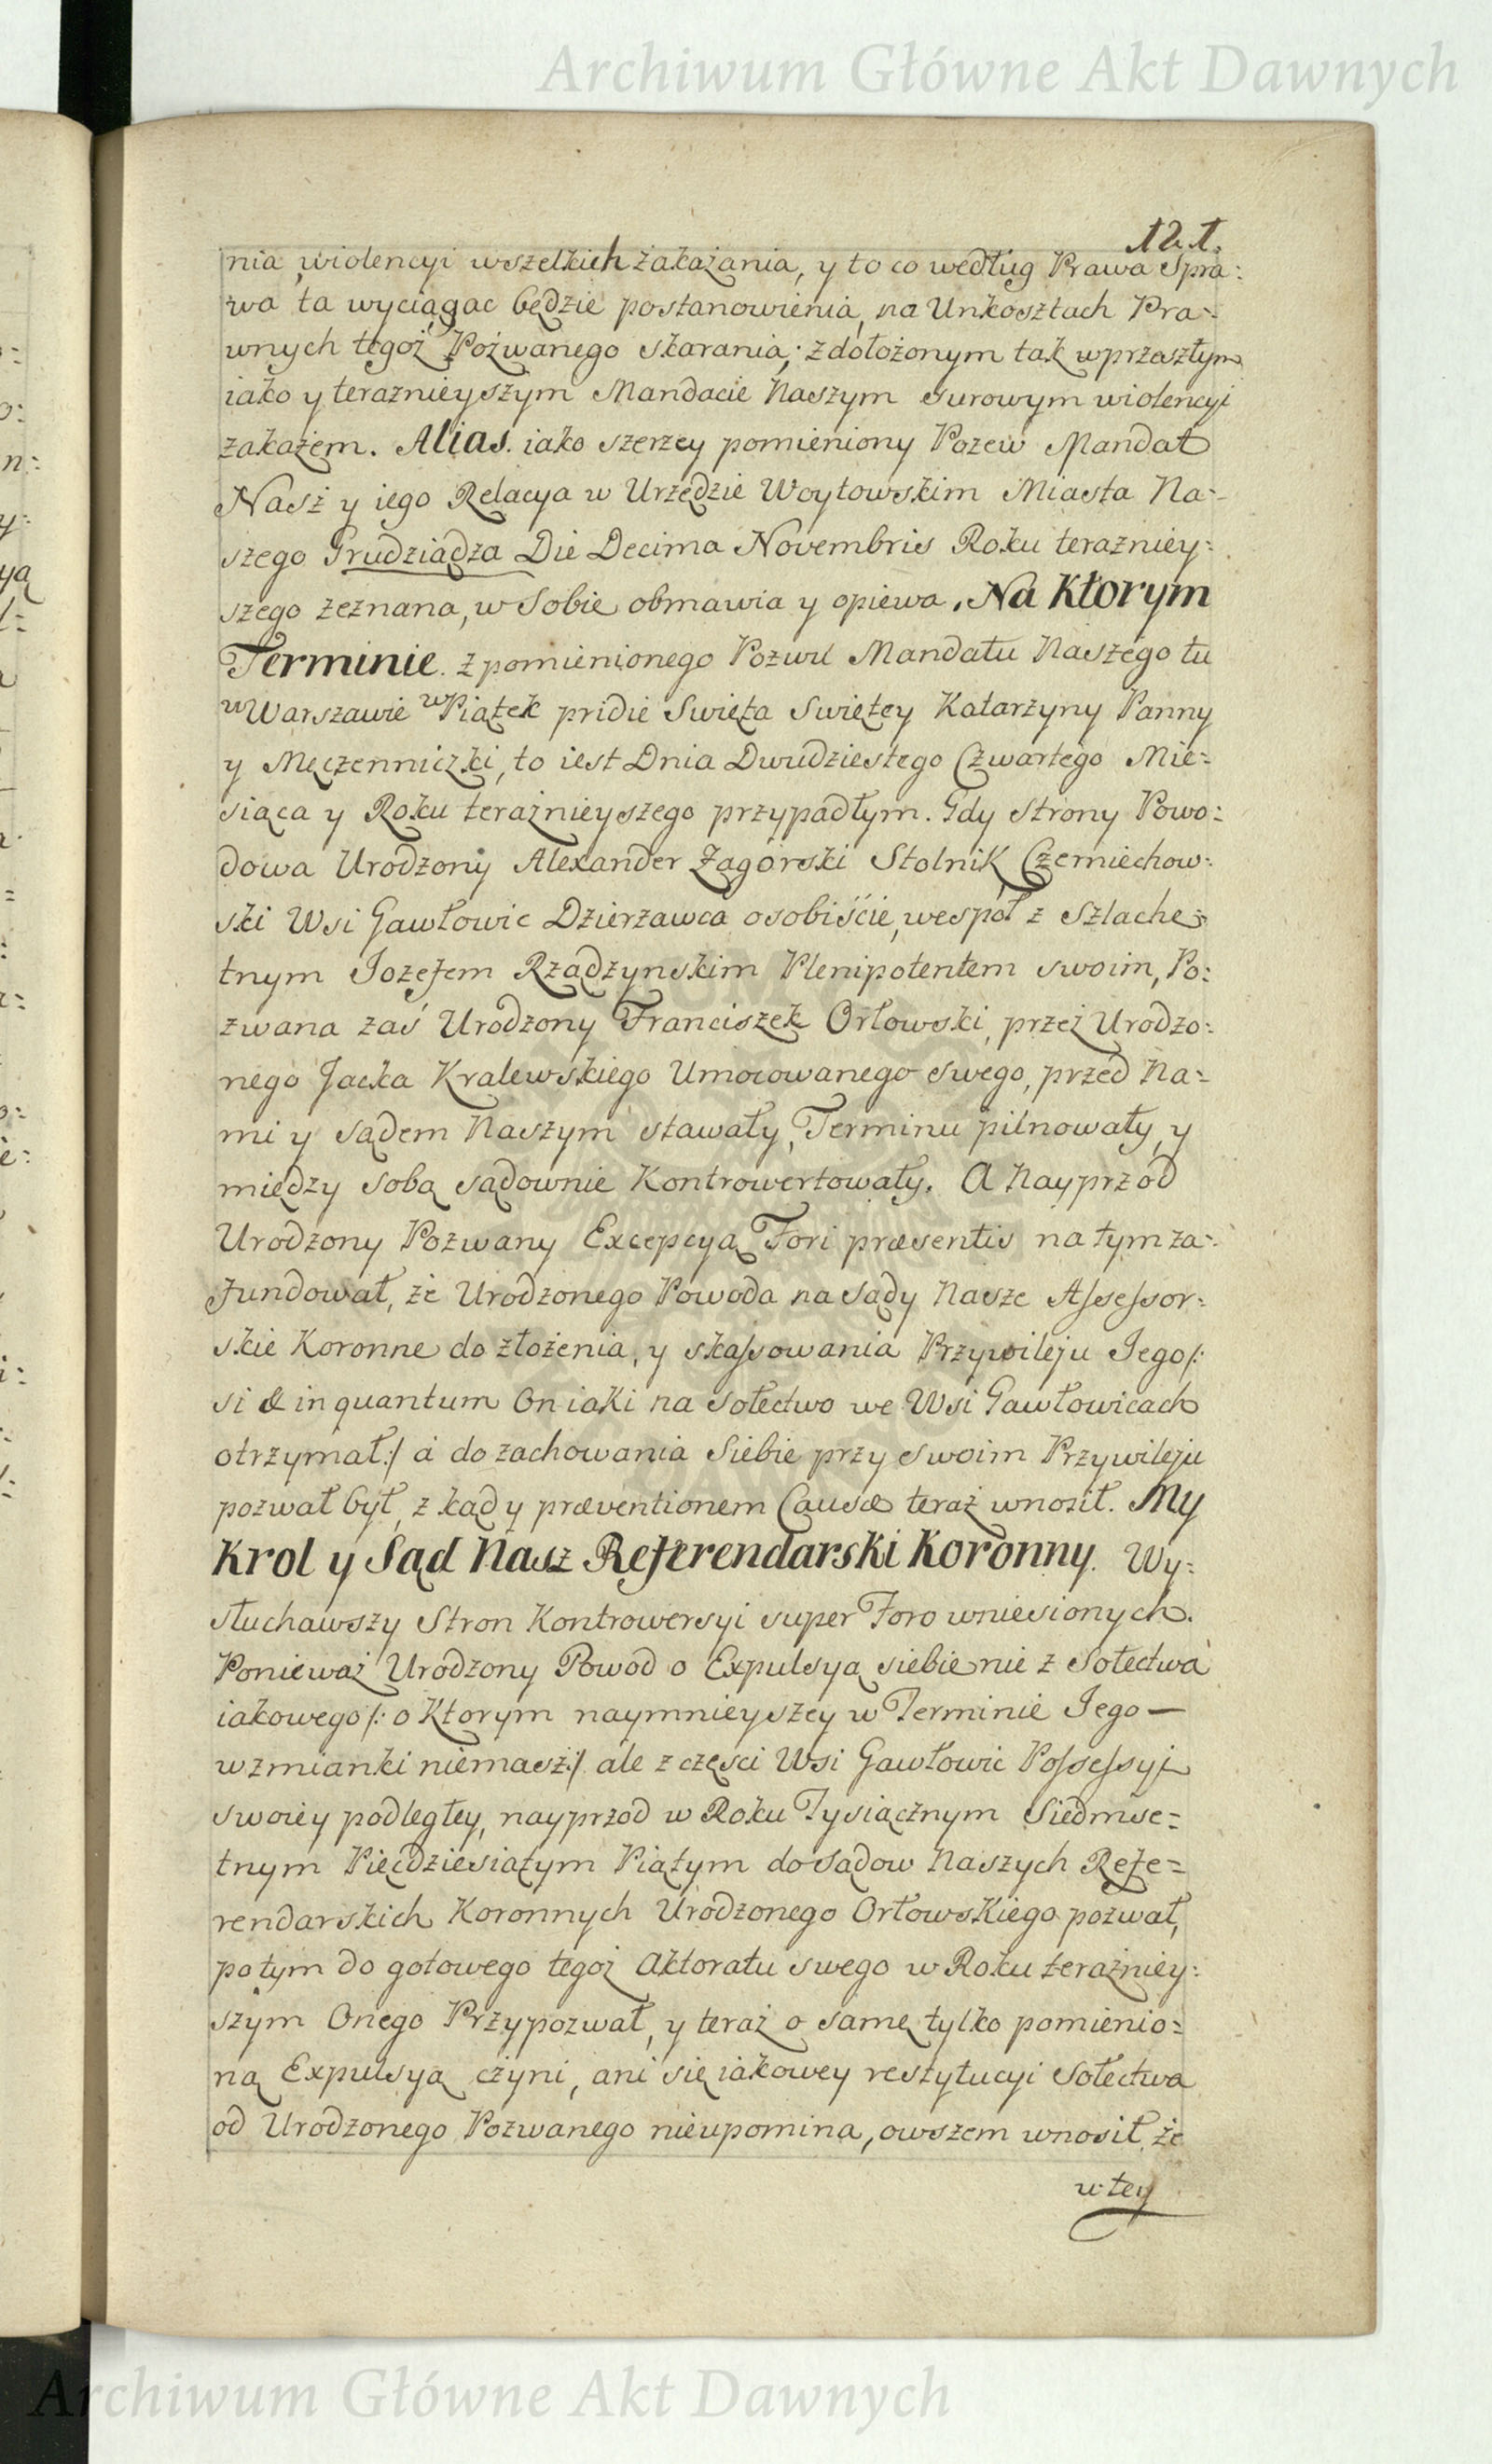 Archiwum Główne Akt Dawnych
121.
nia, wiolencyi wszelkich żakażania, y to co według Prawa Spra:
wa ta wyciągac będzie postanowienia, na Unkosztach Pra:
wnych tegoż Pożwanego skarania; z dołożonym tak w przeszłym
iako y teraznieyszym Mandacie Naszym surowym wiolencyi
zakażem. Alias. iako szerzey pomieniony Pozew Mandat
Nasż y iego Relacya w Urzędzie Woytowskim Miasta Na:
szego Grudziądza Die Decima Novembris Roku terazniey:
szego żeznana, w Sobie obmawia y opiewa. Na Ktorym
Terminie. z pomienionego Pozwu Mandatu Naszego tu
w Warszawie w Piątek pridie Swięta Swiętey Katarżyny Panny
y Męczenniczki, to iest Dnia Dwudziestego Czwartego Mie:
siąca y Roku teraźnieyszego przypadłym. Gdy Strony Powo:
dowa Urodzony Alexander Zagorski Stolnik Czerniechow:
ski Wsi Gawłowic Dzierżawca osobiście, wespoł z Szlache:
tnym Jozefem Rządzynskim Plenipotentem swoim, Po:
zwana zaś Urodzony Franciszek Orłowski, przeż Urodzo:
nego Jacka Kralewskiego Umocowanego swego, przed Na:
mi y sądem Naszym stawały, Terminu pilnowały, y
między sobą sądownie Kontrowertowały. A Nayprzod
Urodzony Pozwany Excepcyą Fori præsentis na tym za:
fundował, że Urodzonego Powoda na sądy Nasze Assessor:
skie Koronne do złożenia, y skassowania Przywileju Jego/:
si & in quantum On iaki na sołectwo we Wsi Gawłowicach
otrzymał:/ a do zachowania Siebie przy swoim Przywileju
pozwał był, z kąd y præventionem Causæ teraż wnosił. My
Krol y Sąd Nasz Referendarski Koronny. Wy:
słuchawszy Stron Kontrowersyi super Foro wniesionych.
Ponieważ Urodzony Powod o Expulsyą siebie nie z Sołectwa
iakowego/: o Ktorym naymnieyszey w Terminie Jego —
wzmianki niemasż:/ ale z częsci Wsi Gawłowic Possessyi
swoiey podległey, nayprzod w Roku Tysiącznym Siedmse:
tnym Pięćdziesiątym Piątym do sądow Naszych Refe:
rendarskich Koronnych Urodzonego Orłowskiego pozwał,
potym do gotowego tegoż Aktoratu swego w Roku teraźniey:
szym Onego Przypozwał, y teraż o samę tylko pomienio:
ną Expulsyą czyni, ani się iakowey restytucyi Sołectwa
od Urodzonego Pozwanego nieupomina, owszem wnosił, że
w tey
Archiwum Główne Akt Dawnych